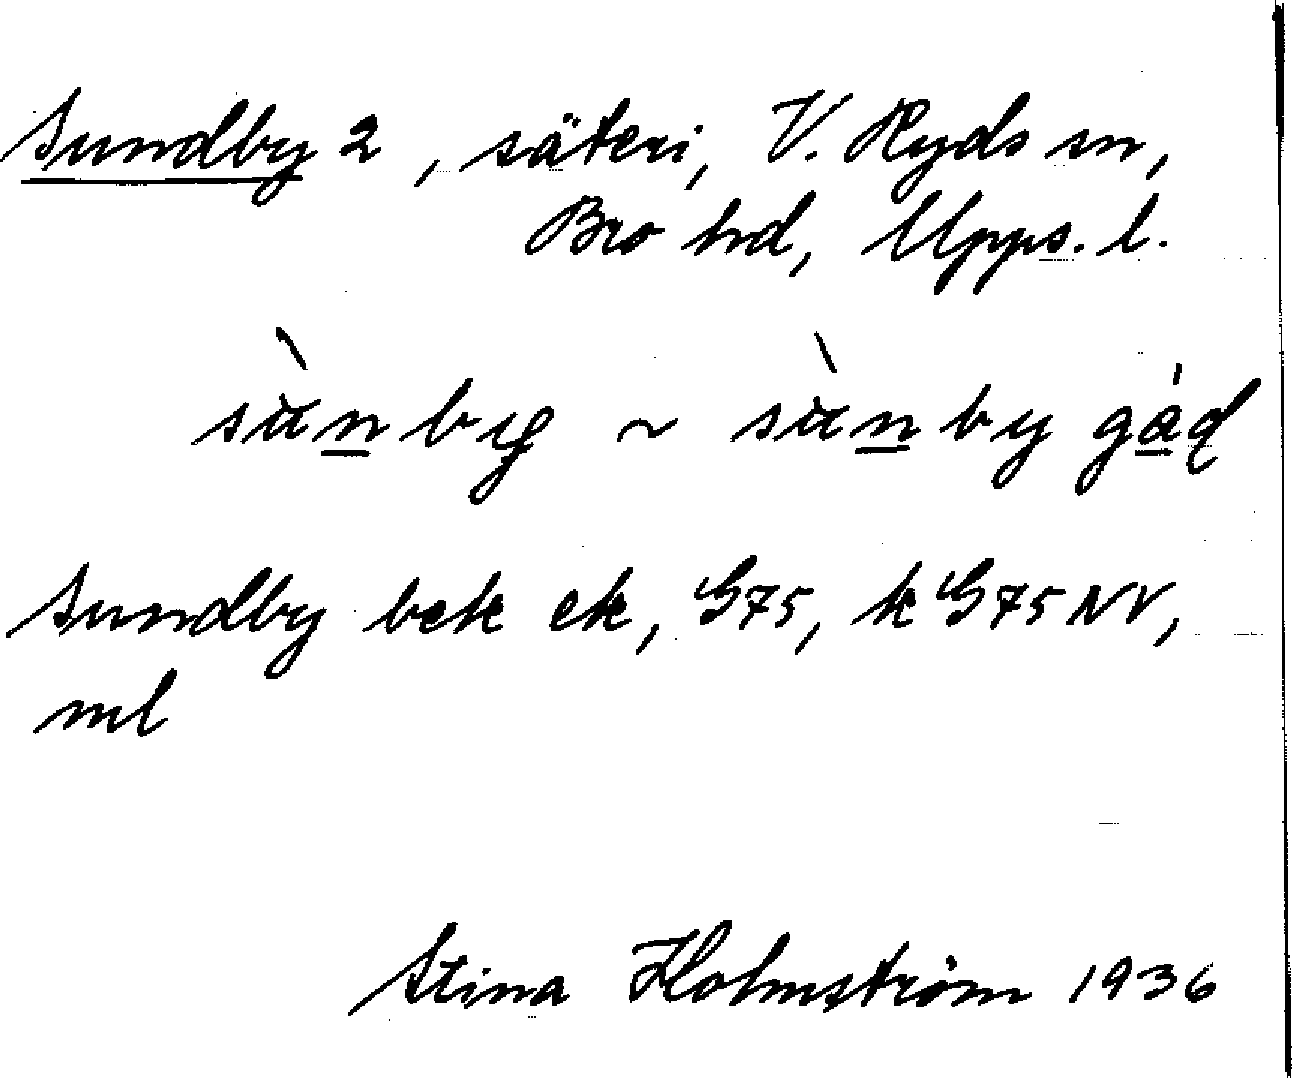 Sundby 2, säteri, V. Ryds sn,
Bro hd, Upps. l.
sùn by ~ sùn by gád
Sundby bek ek, G75, k G75 NV,
ml
Stina Holmström 1936